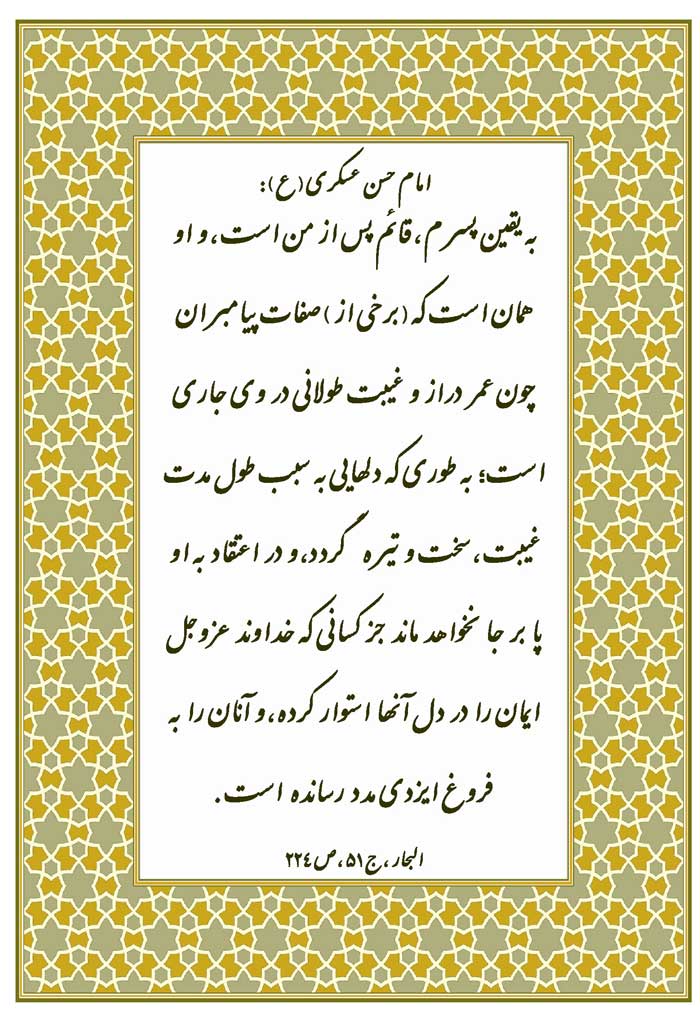 امام حسن عسکری(ع):
به یقین پسرم، قائم پس از من است، و او
همان است که (برخی از) صفات پیامبران
چون عمر دراز و غیبت طولانی در وی جاری
است؛ به طوری که دلهایی به سبب طول مدت
غیبت، سخت و تیره گردد، و در اعتقاد به او
پا بر جا نخواهد ماند جز کسانی که خداوند عزوجل
ایمان را در دل آنها استوار کرده، و آنان را به
فروغ ایزدی مدد رسانده است.
البحار، ج ۵۱، ص ۲۲٤